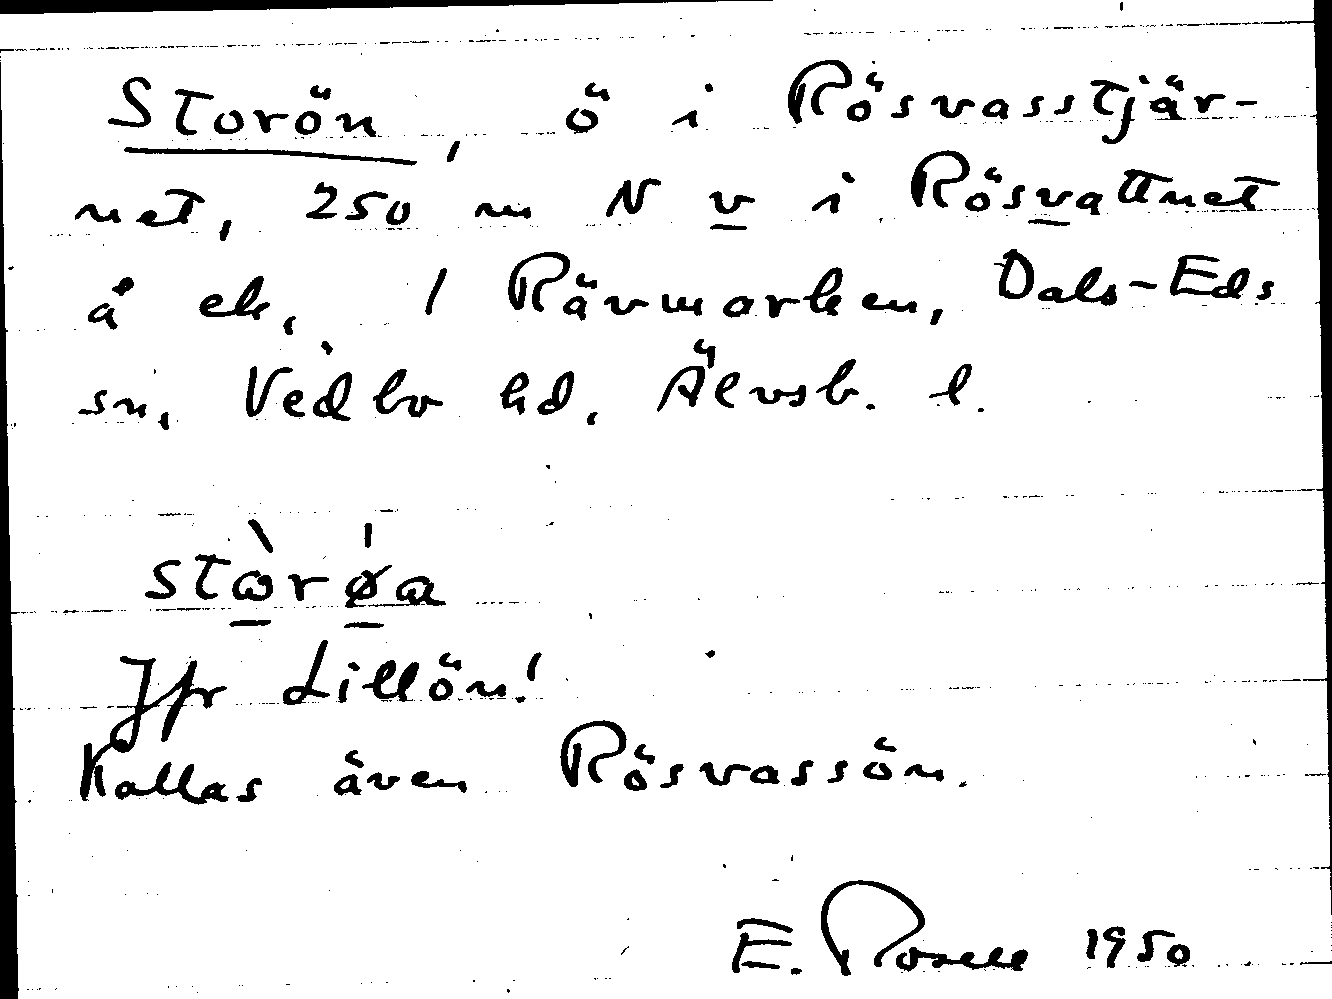 Storön, ö i Rösvasstjär-
net, 250 m N v i Rösvattnet
å ek. 1 Rävmarken, Dals-Eds
sn, Vedbo hd, Älvsb. l.
stὼrǿa
Jfr Lillön!
Kallas även Rösvassön.
E. Rosell 1950